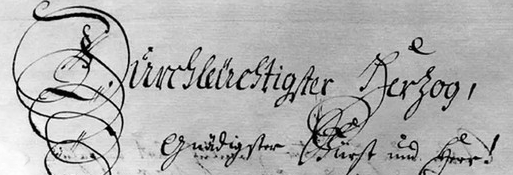 Durchleüchtigster Herzog,
Gnädigster Fürst und Herr!